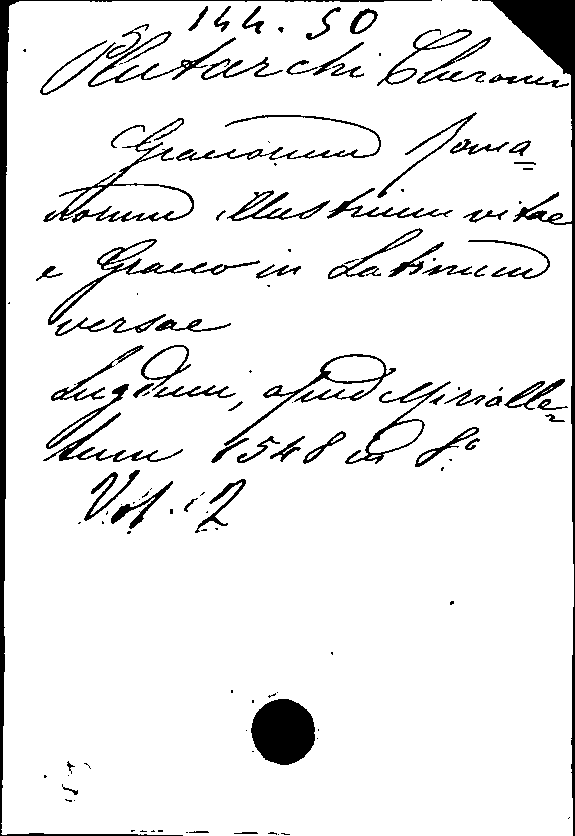 144. 50
Plutarchi Cheronei
Graecorum roma=
norum illustrium vitae
e Graeco in Latinum
versae
Lugduni, apud Mirialle=
tum 1548 in 8º
Vol. 2